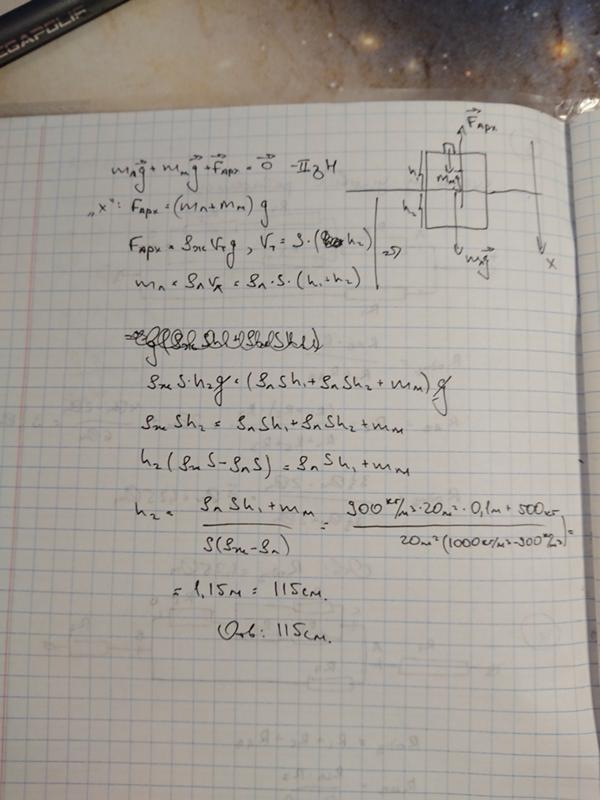 MEGAPOLIF
m_л g⃗ + m_м g⃗ + F⃗_Арх = 0⃗ - II з Н
"x": F_Арх = (m_л + m_м) g
F_Арх = ρ_ж V_т g, V_т = S · (h₂)
m_л = ρ_л V_л = ρ_л · S · (h₁ + h₂)
=>
F⃗_Арх
h₁
m_м g⃗
h₂
m_л g⃗
x
ρ_ж S · h₂ g = (ρ_л S h₁ + ρ_л S h₂ + m_м) g
ρ_ж S h₂ = ρ_л S h₁ + ρ_л S h₂ + m_м
h₂ (ρ_ж S - ρ_л S) = ρ_л S h₁ + m_м
h₂ = (ρ_л S h₁ + m_м) / (S (ρ_ж - ρ_л)) = (900 кг/м³ · 20 м² · 0,1 м + 500 кг) / (20 м² (1000 кг/м³ - 900 кг/м³)) =
= 1,15 м = 115 см.
Отв: 115 см.